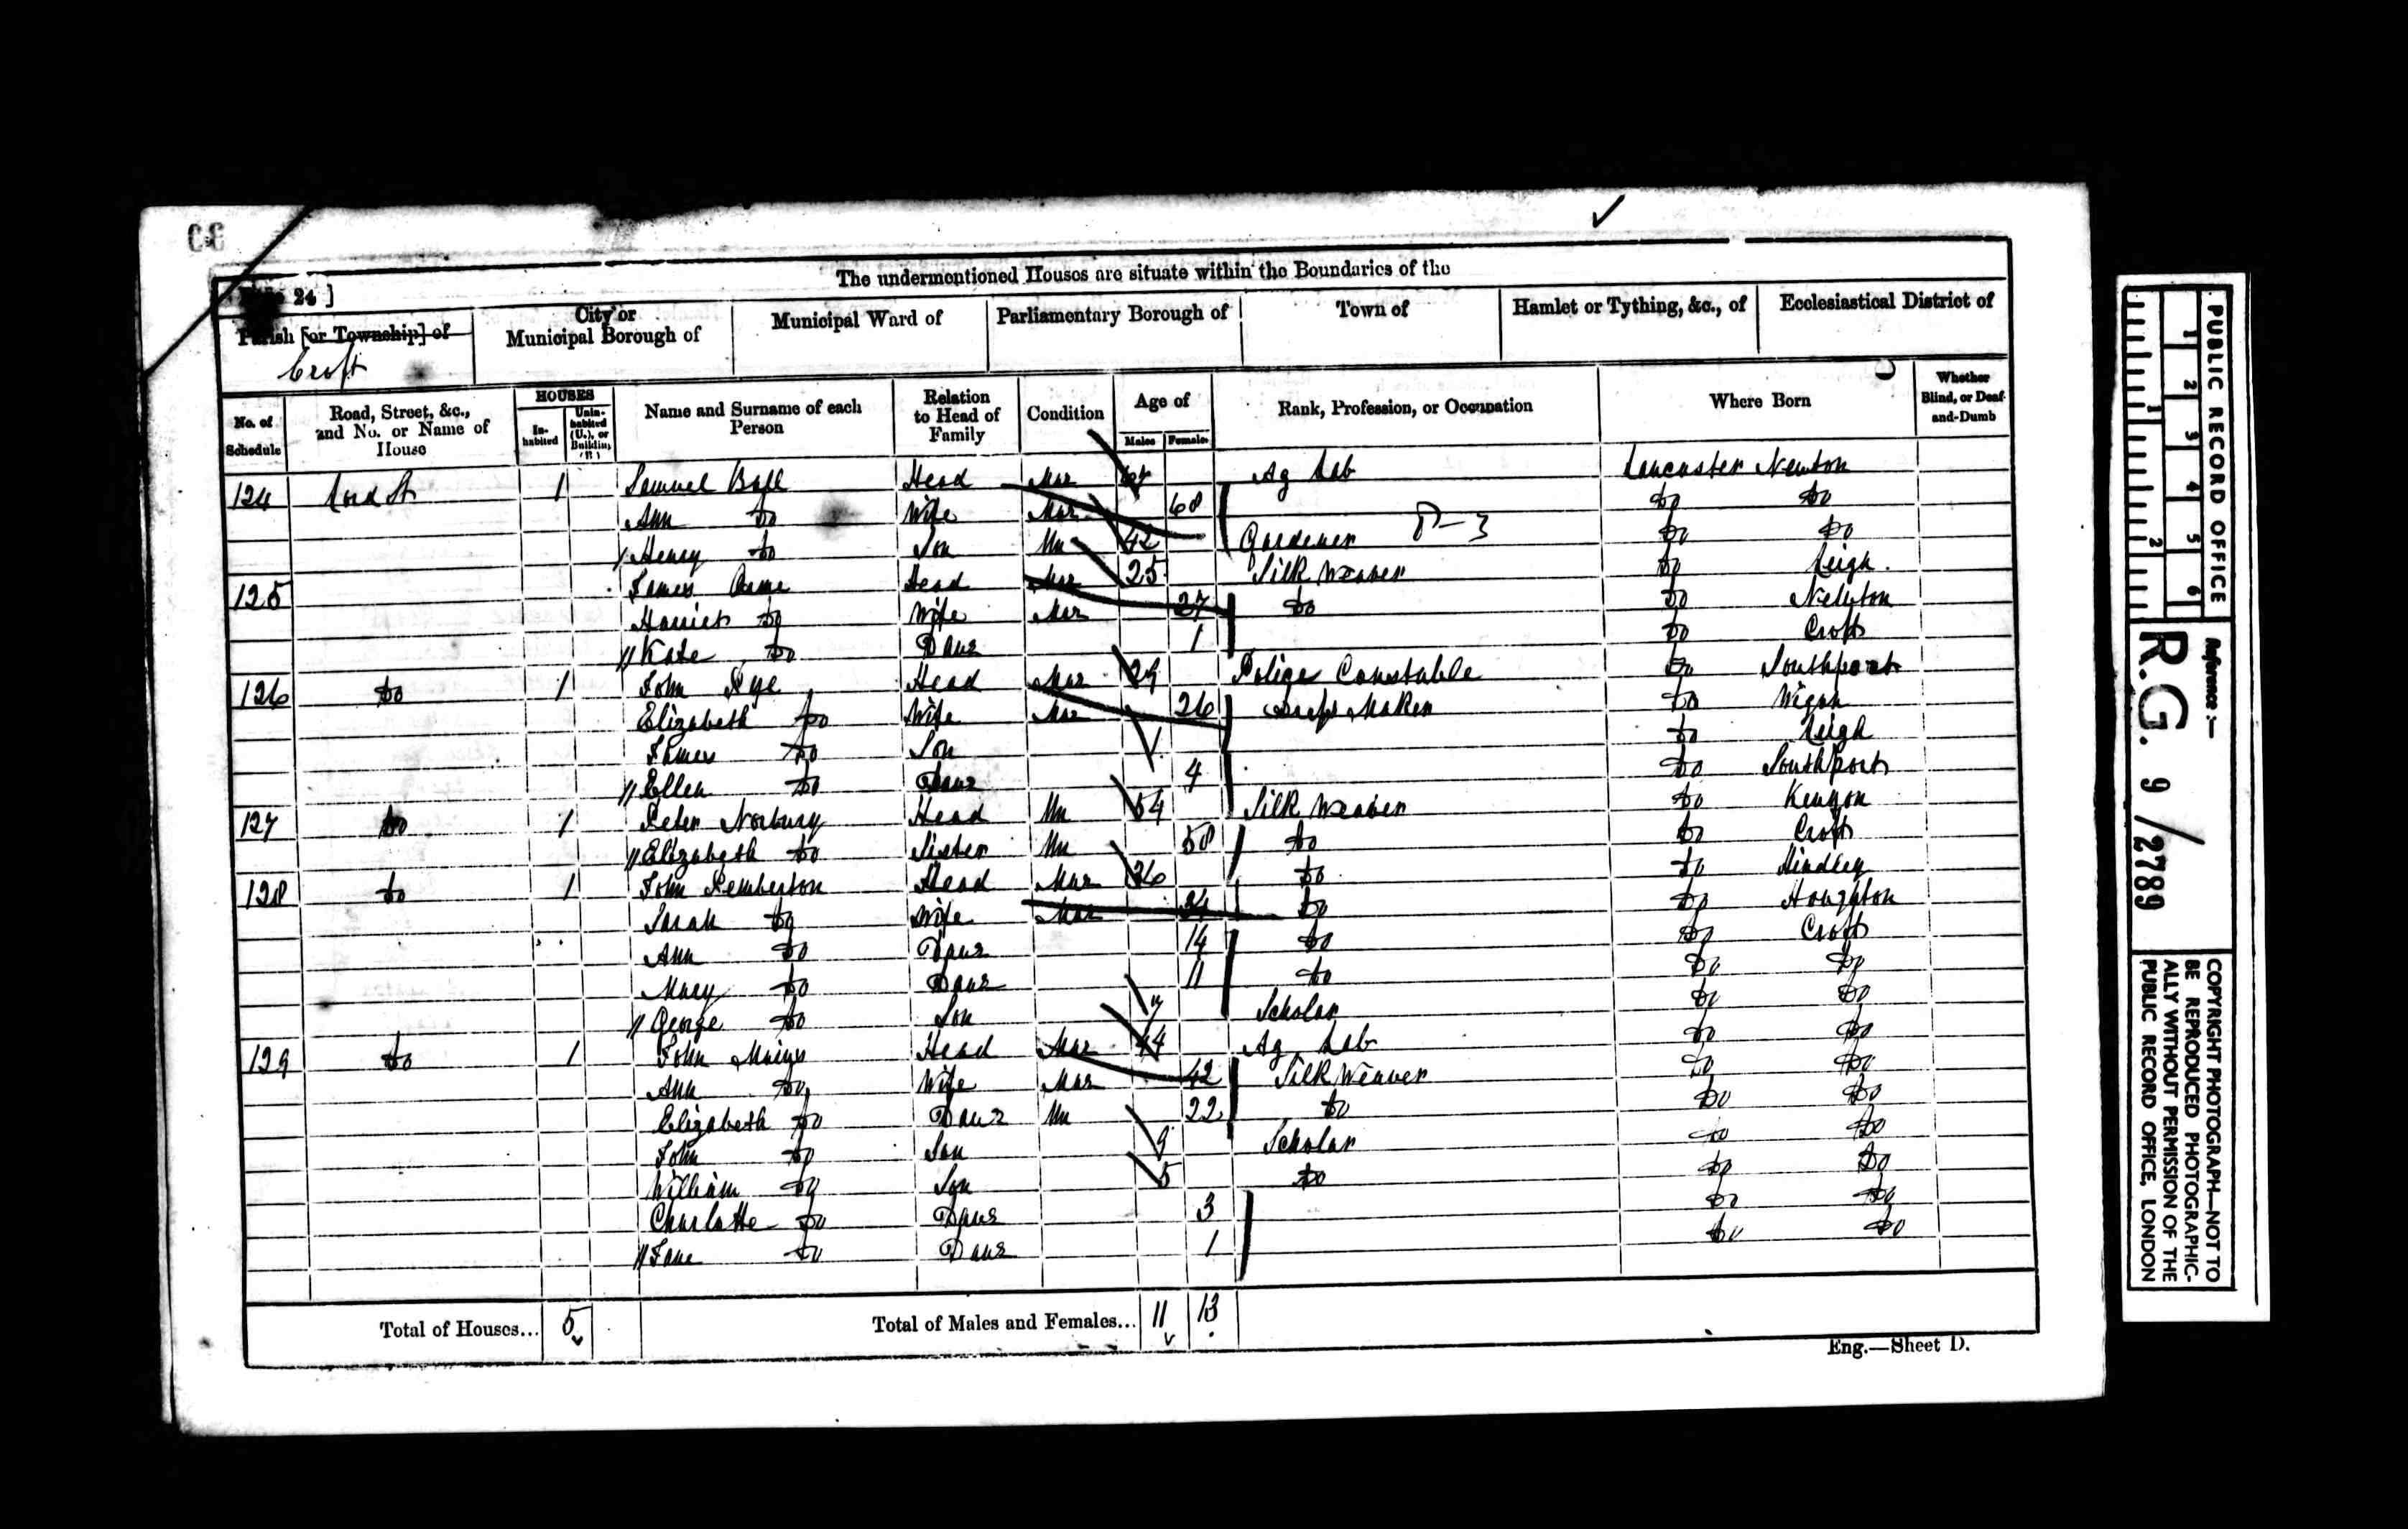 The undermentioned Houses are situate within the Boundaries of the
24 ]
Parish [or Township] of
City or Municipal Borough of
Municipal Ward of
Parliamentary Borough of
Town of
Hamlet or Tything, &c., of
Ecclesiastical District of
Croft
No. of Schedule
Road, Street, &c., and No. or Name of House
HOUSES
Inhabited
Uninhabited (U.), or Building (B)
Name and Surname of each Person
Relation to Head of Family
Condition
Age of
Males
Females
Rank, Profession, or Occupation
Where Born
Whether Blind, or Deaf-and-Dumb
124 Lord St 1 Samuel Ball Head Mar Ag Lab Lancaster Newton
Ann do Wife Mar 68 do do
Henry do Son Un 42 Gardener do do
125 James Head Mar 25 Silk Weaver do Leigh
Harriet do Wife Mar 27 do do Newton
Kate do Daur 1 do Croft
126 do 1 John Rye Head Mar 29 Police Constable do Southport
Elizabeth do Wife Mar 26 Maker do Wigan
James do Son do Leigh
Ellen do Daur 4 do Southport
127 do 1 Peter Norbury Head Un 54 Silk Weaver do Kenyon
Elizabeth do Sister Un 58 do do Croft
128 do 1 John Pemberton Head Mar 36 do do Hindley
Sarah do Wife Mar 34 do do Houghton
Ann do Daur 14 do do Croft
Mary do Daur 11 do do do
George do Son 7 Scholar do do
129 do 1 John Head Mar 44 Ag Lab do do
Ann do Wife Mar 42 Silk Weaver do do
Elizabeth do Daur Un 22 do do do
John do Son 9 Scholar do do
William do Son 5 do do do
Charlotte do Daur 3 do do
Jane do Daur 1 do do
Total of Houses... 5
Total of Males and Females... 11 13
Eng.—Sheet D.
PUBLIC RECORD OFFICE
1 2 3 4 5 6
1 2
Reference :—
R.G. 9 / 2789
COPYRIGHT PHOTOGRAPH—NOT TO
BE REPRODUCED PHOTOGRAPHIC-
ALLY WITHOUT PERMISSION OF THE
PUBLIC RECORD OFFICE, LONDON